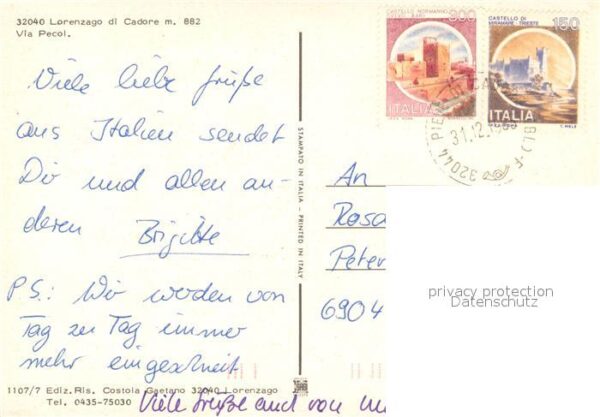 32040 Lorenzago di Cadore m. 882
Via Pecol.
CASTELLO NORMANNO
SVEVO - BARI
300
ITALIA
CASTELLO DI
MIRAMARE - TRIESTE
150
ITALIA
31.12.
32044
Viele liebe Grüße
aus Italien sendet
Dir und allen an-
deren Brigitte
P.S.: Wir werden von
Tag zu Tag immer
mehr eingeschneit
STAMPATO IN ITALIA - PRINTED IN ITALY
An
Rosa
Peter
6904
privacy protection
Datenschutz
1107/7 Ediz. Ris. Costola Gaetano 32040 Lorenzago
Tel. 0435-75030
Viele Grüße auch von